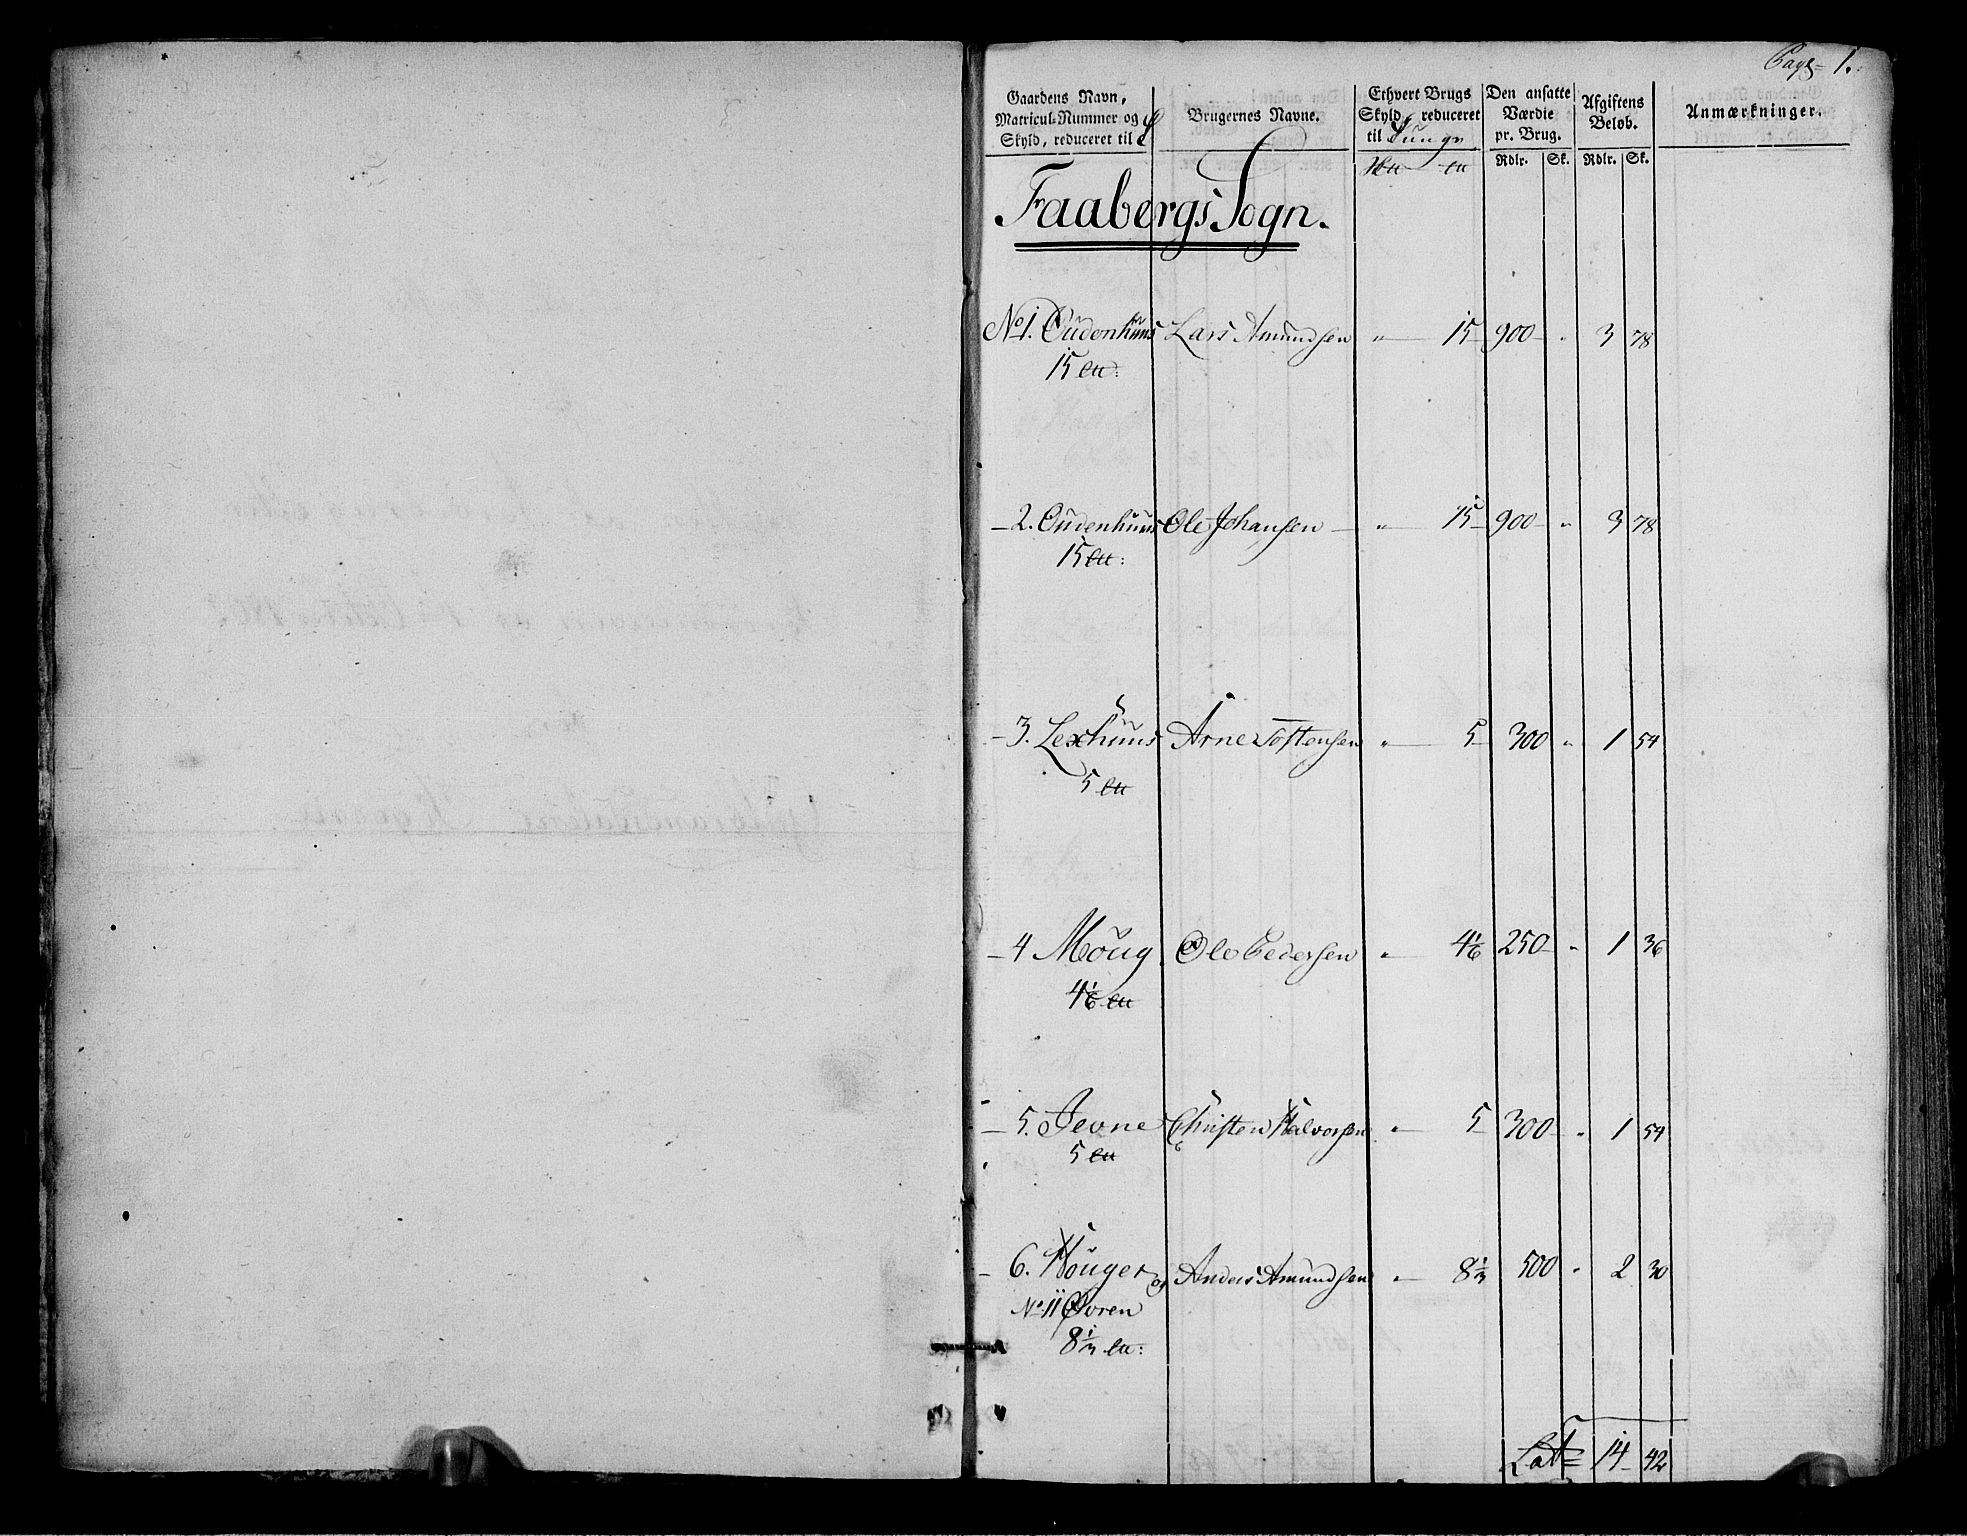 Page 1.
Gaardens Navn, Matricul-Nummer og Skyld, reduceret til
Brugernes Navne.
Ethvert Brugs Skyld, reduceret til Tunge
Den ansatte Værdie pr. Brug.
Afgiftens Beløb.
Anmærkninger.
Rdlr. Sk. Rdlr. Sk.
Faabergs Sogn.
No 1. Oudenhuus Lars Amundsen " 15 900 " 3 78
15
2. Oudenhuus Ole Johansen " 15 900 " 3 78
15
3. Lexhuus Arne Tostensen " 5 300 " 1 54
5
4 Moug Ole Pedersen " 4 1/6 250 " 1 36
4 1/6
5. Jevne Christen Halvorsen " 5 300 " 1 54
5
6. Houger og Anders Amundsen " 8 1/3 500 " 2 30
No 11 Øvren
8 1/3
Lat 14 42